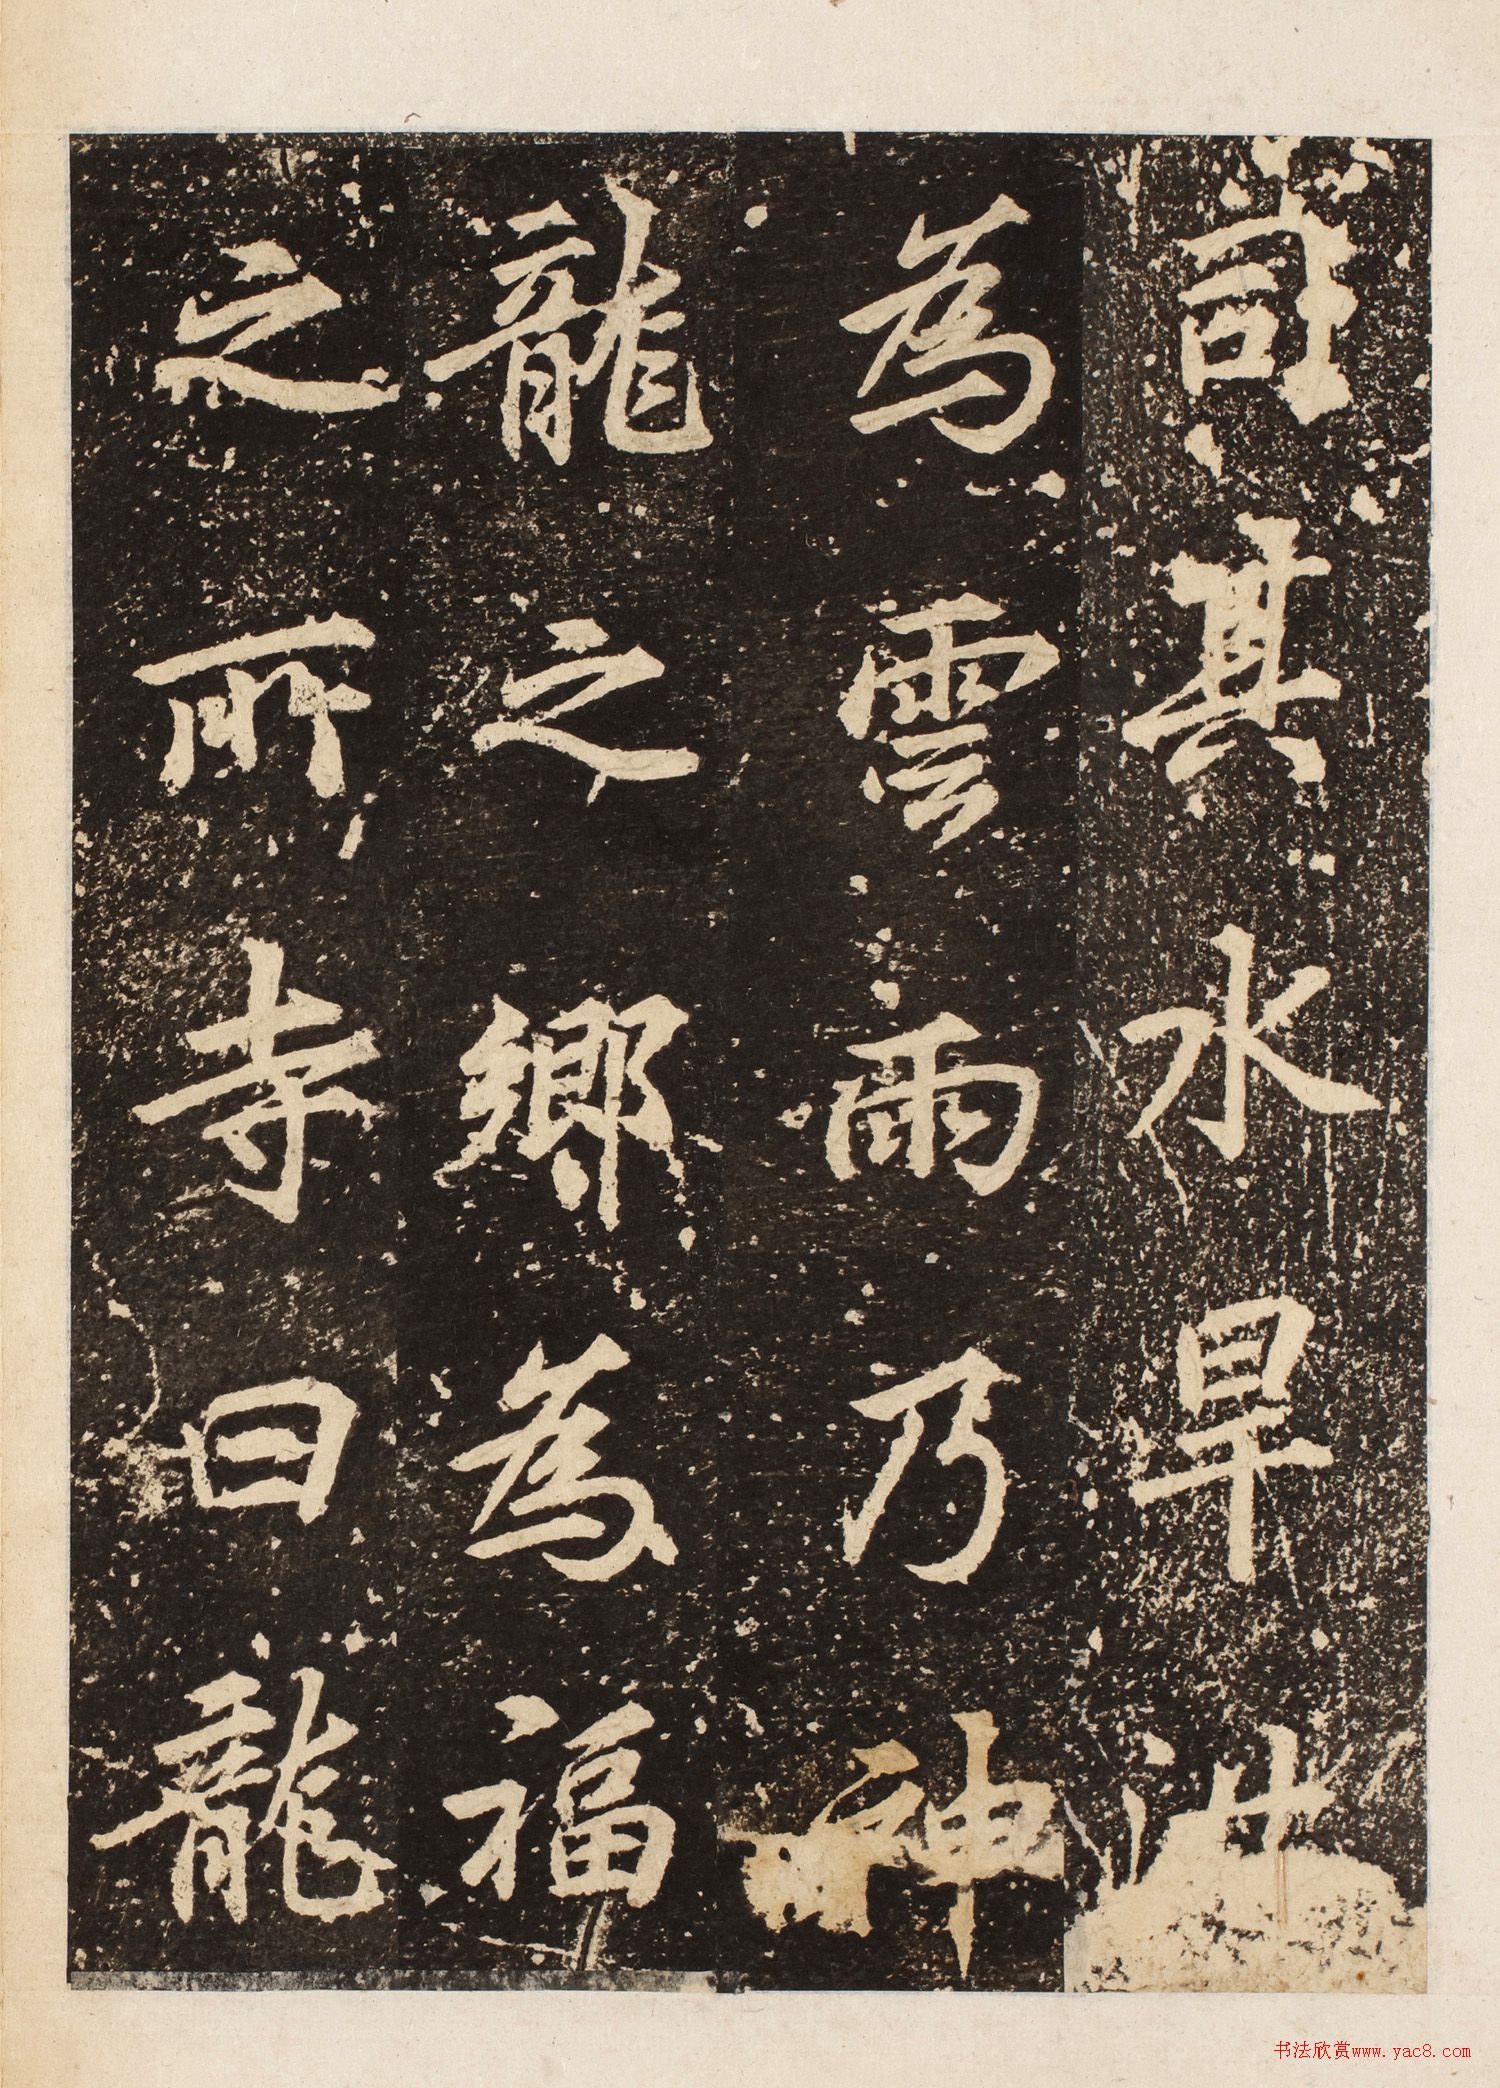 司其水旱
為雲雨乃神
龍之鄉為福
之所寺曰龍
书法欣赏www.yac8.com